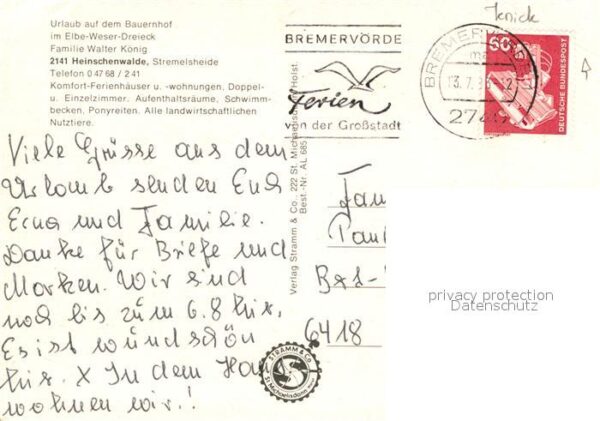 Knick
Urlaub auf dem Bauernhof
im Elbe-Weser-Dreieck
Familie Walter König
2141 Heinschenwalde, Stremelsheide
Telefon 0 47 68 / 2 41
Komfort-Ferienhäuser u. -wohnungen, Doppel-
u. Einzelzimmer. Aufenthaltsräume, Schwimm-
becken, Ponyreiten. Alle landwirtschaftlichen
Nutztiere.
BREMERVÖRDE
Ferien
von der Großstadt
BREMERVÖRDE
13.7.
274
60
DEUTSCHE BUNDESPOST
Viele Grüsse aus dem
Urlaub senden Euch
Erna und Familie.
Danke für Briefe und
Marken. Wir sind
noch bis zum 6.8 hir.
Es ist wundschön
hir. X In dem Haus
wohnen wir.!
Verlag Stramm & Co., 222 St. Michaelisdonn/Holst.
Best.-Nr. AL 685
Fam
Paul
Bad-
6418
STRAMM & CO.
St. Michaelisdonn
privacy protection
Datenschutz